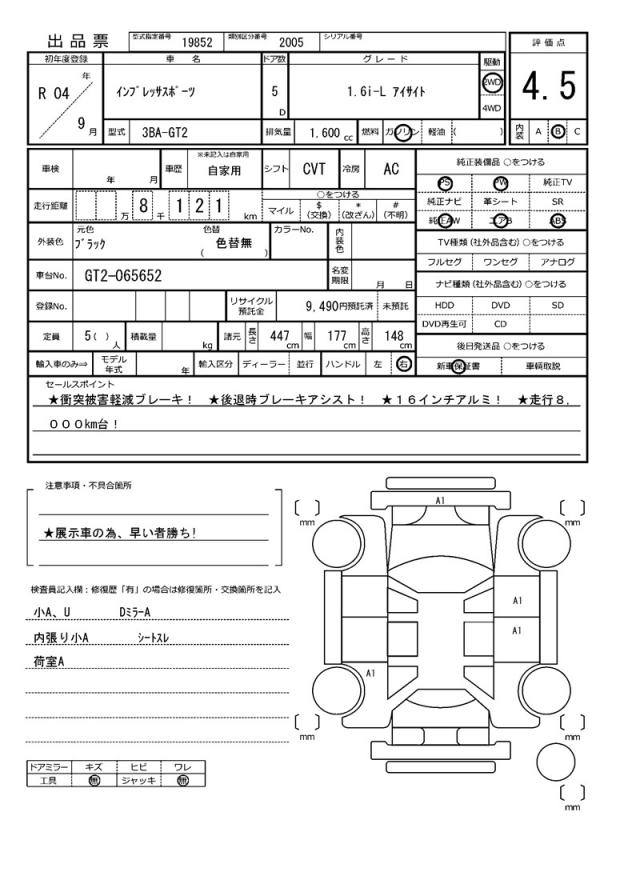 出品票 型式指定番号 19852 類別区分番号 2005 シリアル番号
評価点
4.5
内装 A B C
初年度登録 車名 ドア数 グレード 駆動
R 04 年 9 月
インプレッサスポーツ 5 D 1.6i-L アイサイト 2WD 4WD
型式 3BA-GT2 排気量 1.600 cc 燃料 ガソリン 軽油 ( )
車検 年 月 車歴 ※未記入は自家用 自家用 シフト CVT 冷房 AC
走行距離 万 8 千 1 2 1 km
○をつける
マイル $ (交換) * (改ざん) # (不明)
外装色 元色 ブラック 色替 色替無 ( ) カラーNo. 内装色
車台No. GT2-065652 名変期限 月 日
登録No. リサイクル預託金 9,490円預託済 未預託
定員 5( ) 人 積載量 kg 諸元 長さ 447 cm 幅 177 cm 高さ 148 cm
輸入車のみ⇒ モデル年式 年 輸入区分 ディーラー 並行 ハンドル 左 右
純正装備品 ○をつける
PS PW 純正TV
純正ナビ 革シート SR
純正AW エアB ABS
TV種類(社外品含む)○をつける
フルセグ ワンセグ アナログ
ナビ種類(社外品含む)○をつける
HDD DVD SD
DVD再生可 CD
後日発送品 ○をつける
新車保証書 車輌取説
セールスポイント
★衝突被害軽減ブレーキ! ★後退時ブレーキアシスト! ★16インチアルミ! ★走行8,
000km台!
注意事項・不具合箇所
★展示車の為、早い者勝ち!
検査員記入欄:修復歴「有」の場合は修復箇所・交換箇所を記入
小A、U DミラーA
内張り小A シートスレ
荷室A
ドアミラー キズ ヒビ ワレ
工具 無 ジャッキ 無
A1
[ ] mm [ ] mm
A1
A1
A1
[ ] mm [ ] mm
[ ] mm